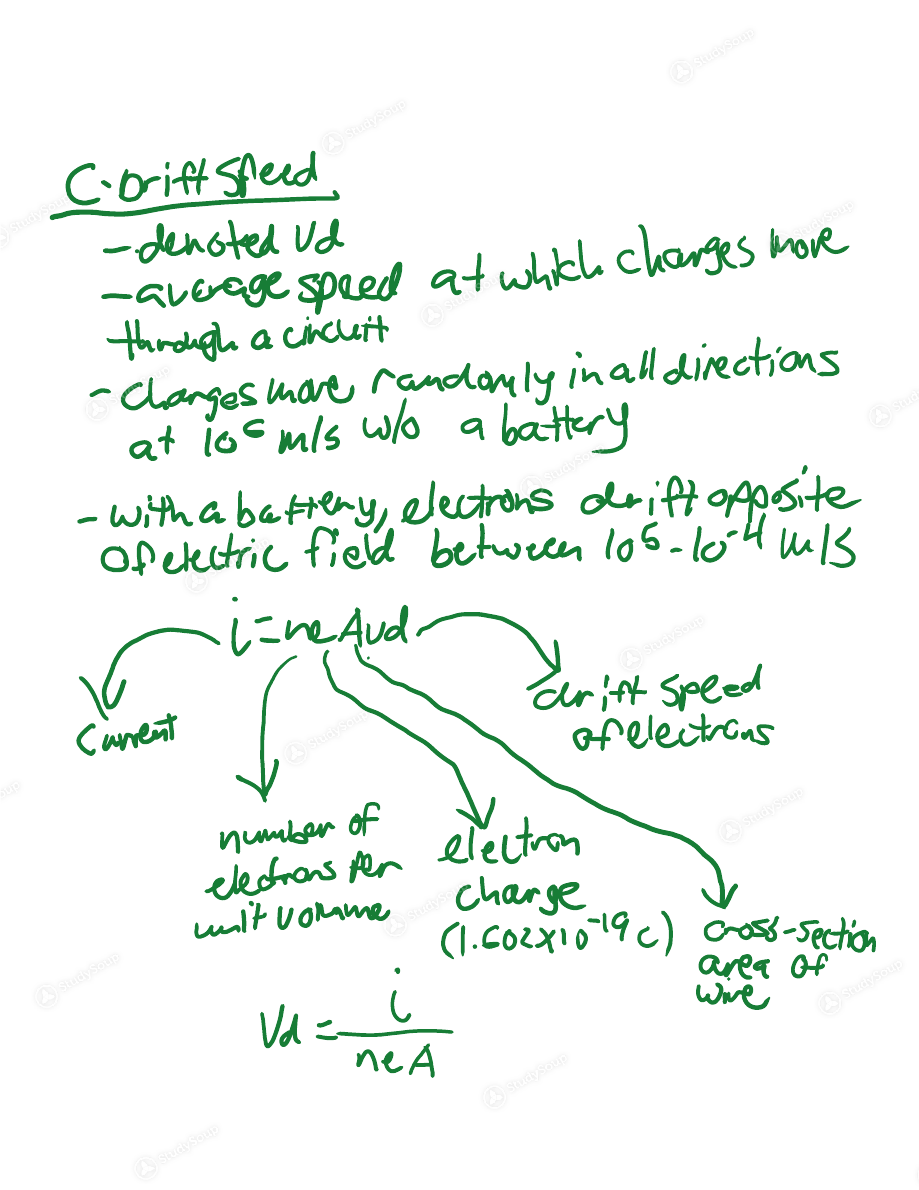 C. Drift Speed
- denoted Vd
- average speed at which charges move
through a circuit
- charges move randomly in all directions
at 10⁶ m/s w/o a battery
- with a battery, electrons drift opposite
of electric field between 10⁵-10⁻⁴ m/s
i=neAvd
current
drift speed
of electrons
number of
electrons per
unit volume
electron
charge
(1.602x10⁻¹⁹ C)
cross-section
area of
wire
Vd = i/neA
StudySoup